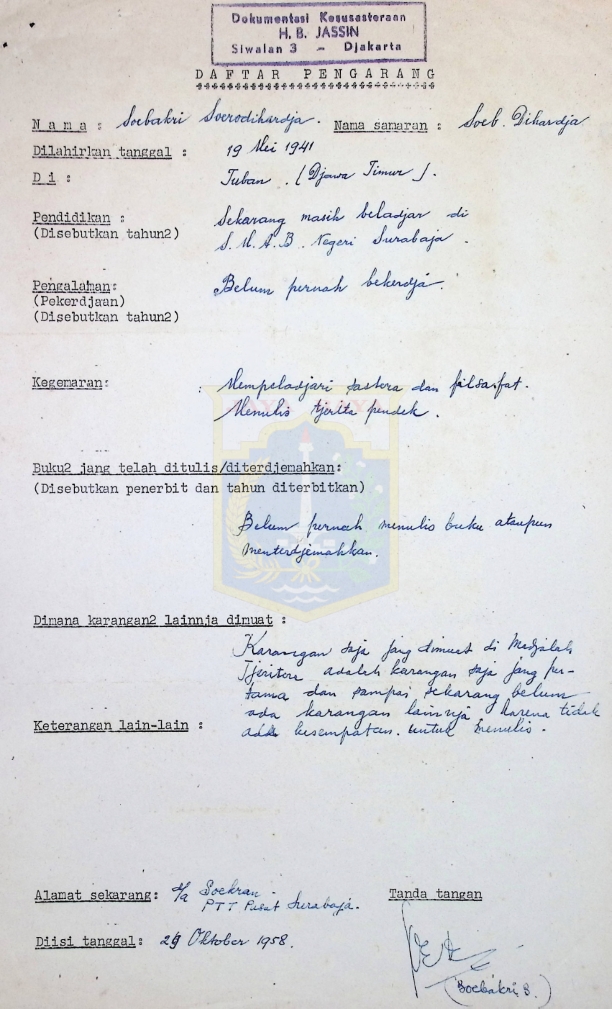 Dokumentasi Kesusasteraan
H. B. JASSIN
Siwalan 3 - Djakarta
DAFTAR PENGARANG
Nama : Soebakri Soerodihardja. Nama samaran : Soeb. Dihardja
Dilahirkan tanggal : 19 Mei 1941
Di : Tuban. (Djawa Timur).
Pendidikan : Sekarang masih beladjar di
(Disebutkan tahun2) S.M.A.B. Negeri Surabaja.
Pengalaman: Belum pernah bekerdja.
(Pekerdjaan)
(Disebutkan tahun2)
Kegemaran: : Mempeladjari sastera dan filsafat.
Menulis tjerita pendek.
Buku2 jang telah ditulis/diterdjemahkan:
(Disebutkan penerbit dan tahun diterbitkan)
Belum pernah menulis buku ataupun
menterdjemahkan.
Dimana karangan2 lainnja dimuat :
Karangan saja jang dimuat di Madjalah
Tjeritera adalah karangan saja jang per-
tama dan sampai sekarang belum
ada karangan lainnja karena tidak
Keterangan lain-lain : ada kesempatan untuk menulis.
Alamat sekarang: d/a Soekran.
PTT Pusat Surabaja.
Tanda tangan
Diisi tanggal: 29 Oktober 1958.
(Soebakri S.)